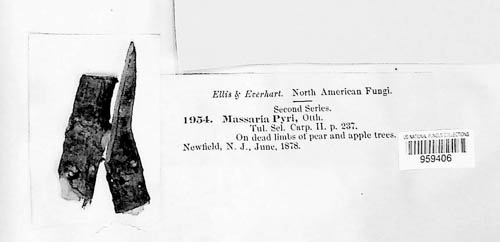 Ellis & Everhart. North American Fungi.
Second Series.
1954. Massaria Pyri, Otth.
Tul. Sel. Carp. II. p. 237.
On dead limbs of pear and apple trees.
Newfield, N. J., June, 1878.
US NATIONAL FUNGUS COLLECTIONS
959406